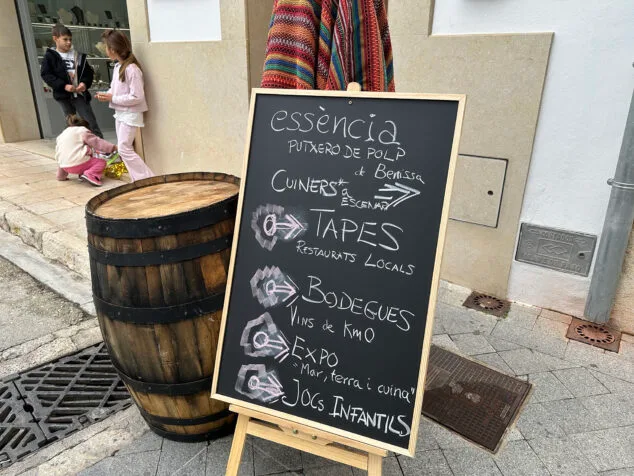 essència
PUTXERO DE POLP
de Benissa
CUINERS a
ESCENA
TAPES
RESTAURATS LOCALS
BODEGUES
Vins de Km0
EXPO
"Mar, terra i cuina"
JOCS INFANTILS